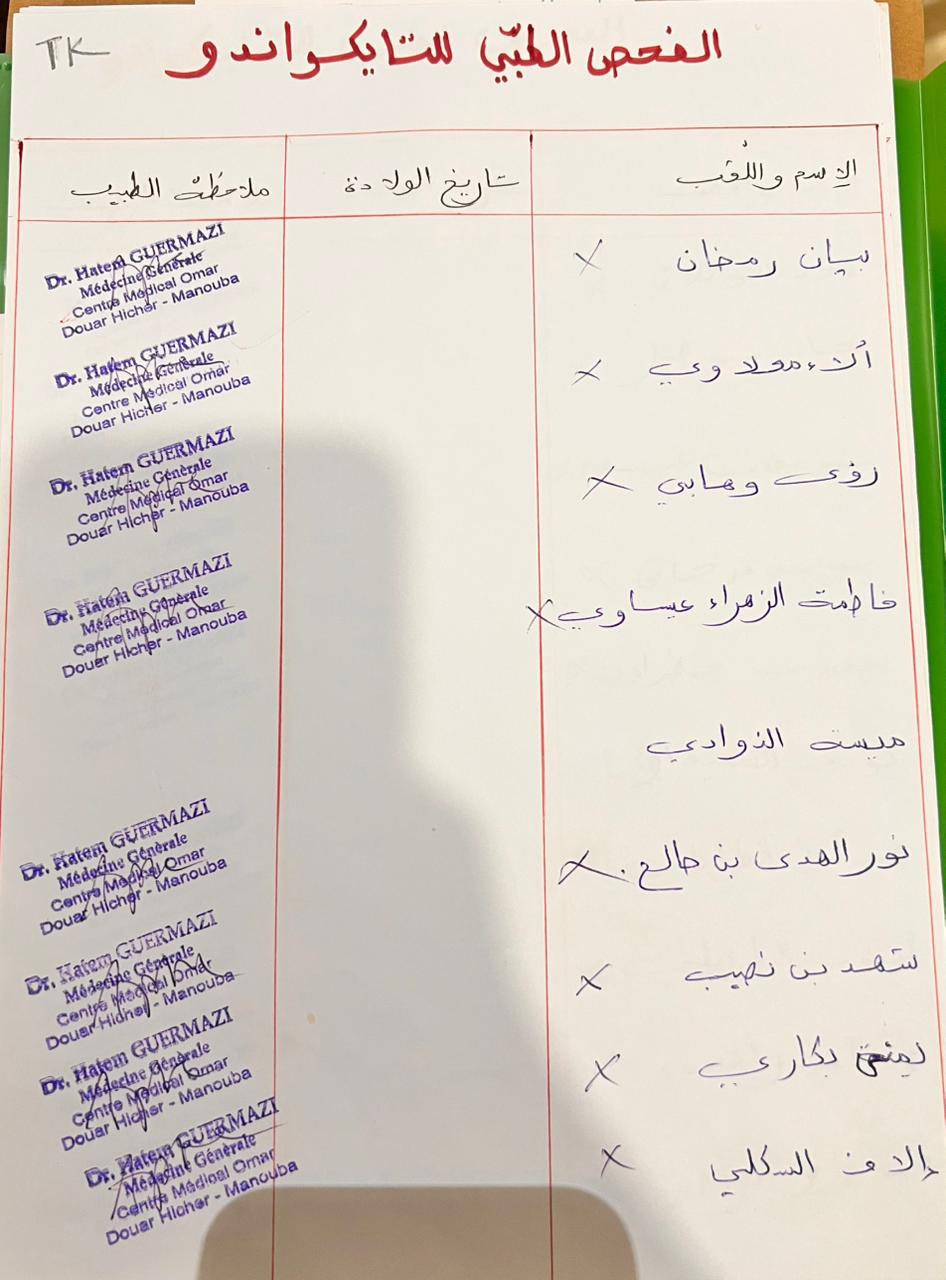 TK
الفحص الطبّي للتايكواندو
الإسم واللّقب تاريخ الولادة ملاحظة الطبيب
بيان رمضان X
Dr. Hatem GUERMAZI
Médecine Générale
Centre Médical Omar
Douar Hicher - Manouba
ألاء مولاوي X
Dr. Hatem GUERMAZI
Médecine Générale
Centre Médical Omar
Douar Hicher - Manouba
رؤى وهابي X
Dr. Hatem GUERMAZI
Médecine Générale
Centre Médical Omar
Douar Hicher - Manouba
فاطمة الزهراء عيساوي X
Dr. Hatem GUERMAZI
Médecine Générale
Centre Médical Omar
Douar Hicher - Manouba
ميسة الذوادي
نور الهدى بن صالح . X
Dr. Hatem GUERMAZI
Médecine Générale
Centre Médical Omar
Douar Hicher - Manouba
شهد بن نصيب X
Dr. Hatem GUERMAZI
Médecine Générale
Centre Médical Omar
Douar Hicher - Manouba
يمنى بكاري X
Dr. Hatem GUERMAZI
Médecine Générale
Centre Médical Omar
Douar Hicher - Manouba
إلاف السكلي X
Dr. Hatem GUERMAZI
Médecine Générale
Centre Médical Omar
Douar Hicher - Manouba